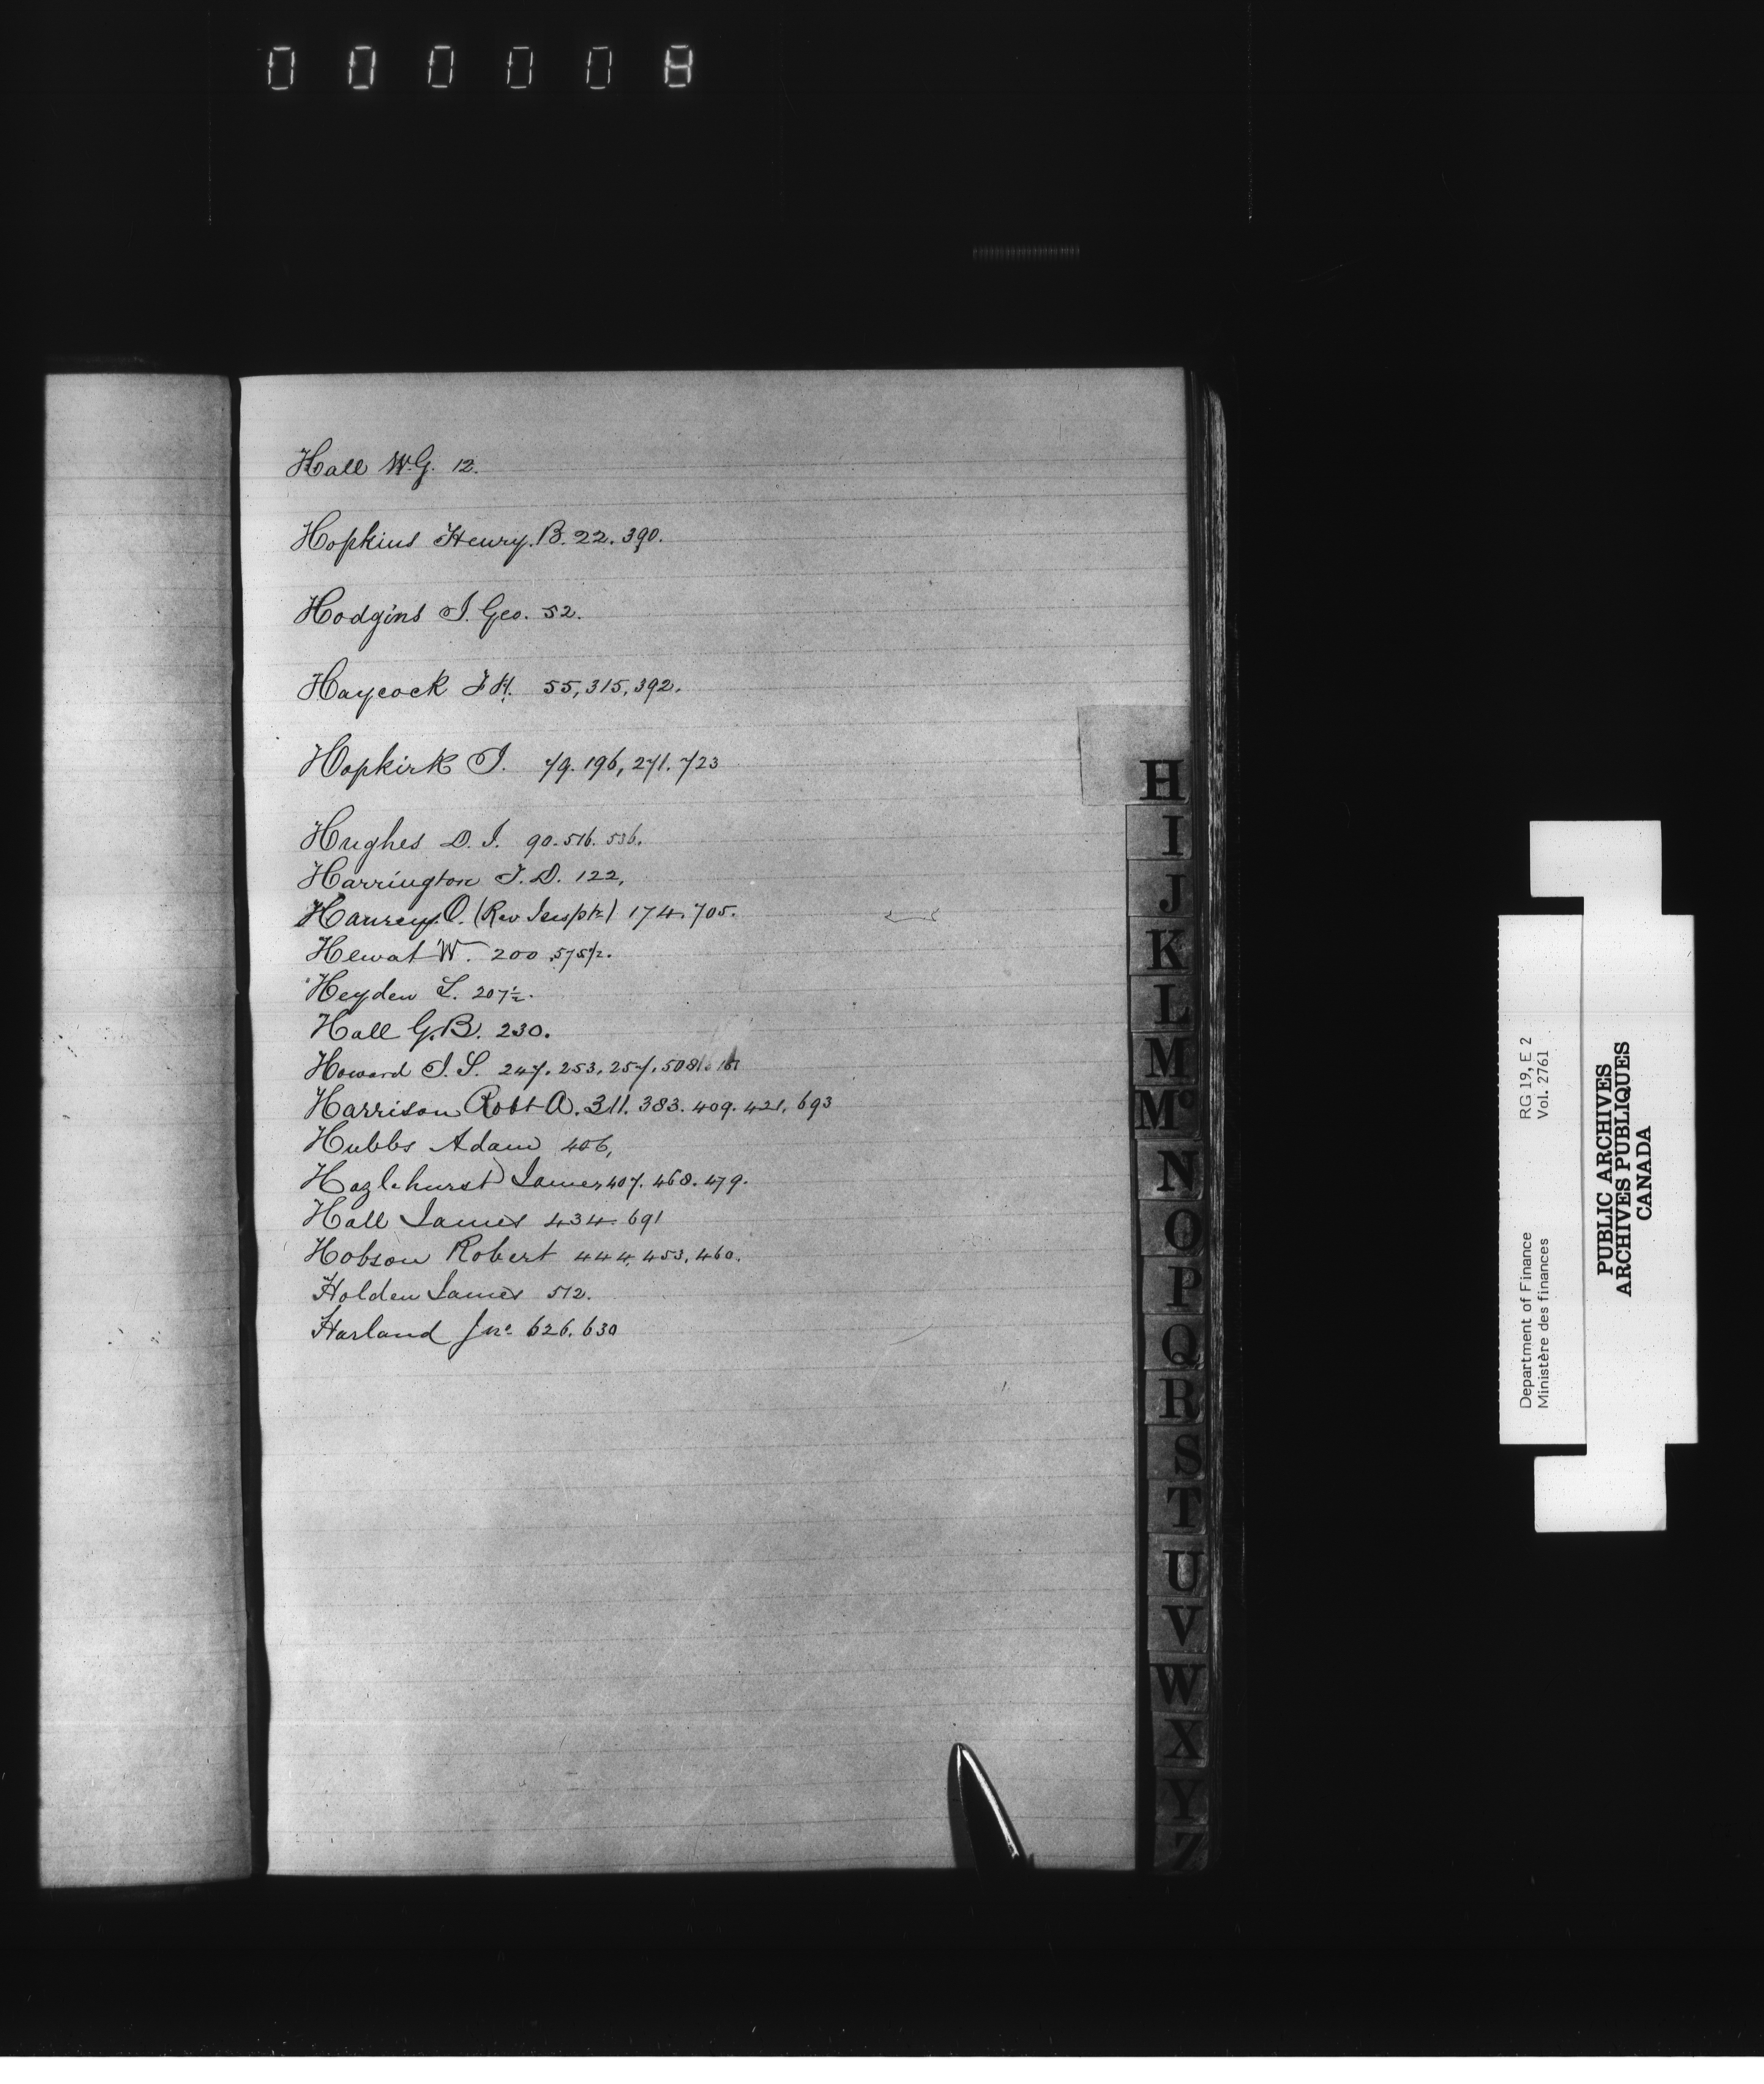 000008
Hall W.G. 12.
Hopkins Henry. B. 22. 390.
Hodgins J. Geo. 52.
Haycock J H. 55, 315, 392.
Hopkirk J. 79. 196, 271. 723
Hughes D. J. 90. 516. 536.
Harrington J. D. 122,
O. (Rev Inspr) 174. 705.
Hewat W. 200. 575½.
Heyden L. 207½.
Hall G.B. 230.
Howard J. S. 247. 253. 257. 508½
Harrison Robt A. 311. 383. 409. 421. 693
Hubbs Adam 406,
Hazlehurst James 407. 468. 479.
Hall James 434. 691
Hobson Robert 444, 453, 460.
Holden James 512.
Harland Jno. 626. 630
H
I
J
K
L
M
Mc
N
O
P
Q
R
S
T
U
V
W
X
Y
Z
Department of Finance RG 19, E 2
Ministère des finances Vol. 2761
PUBLIC ARCHIVES
ARCHIVES PUBLIQUES
CANADA